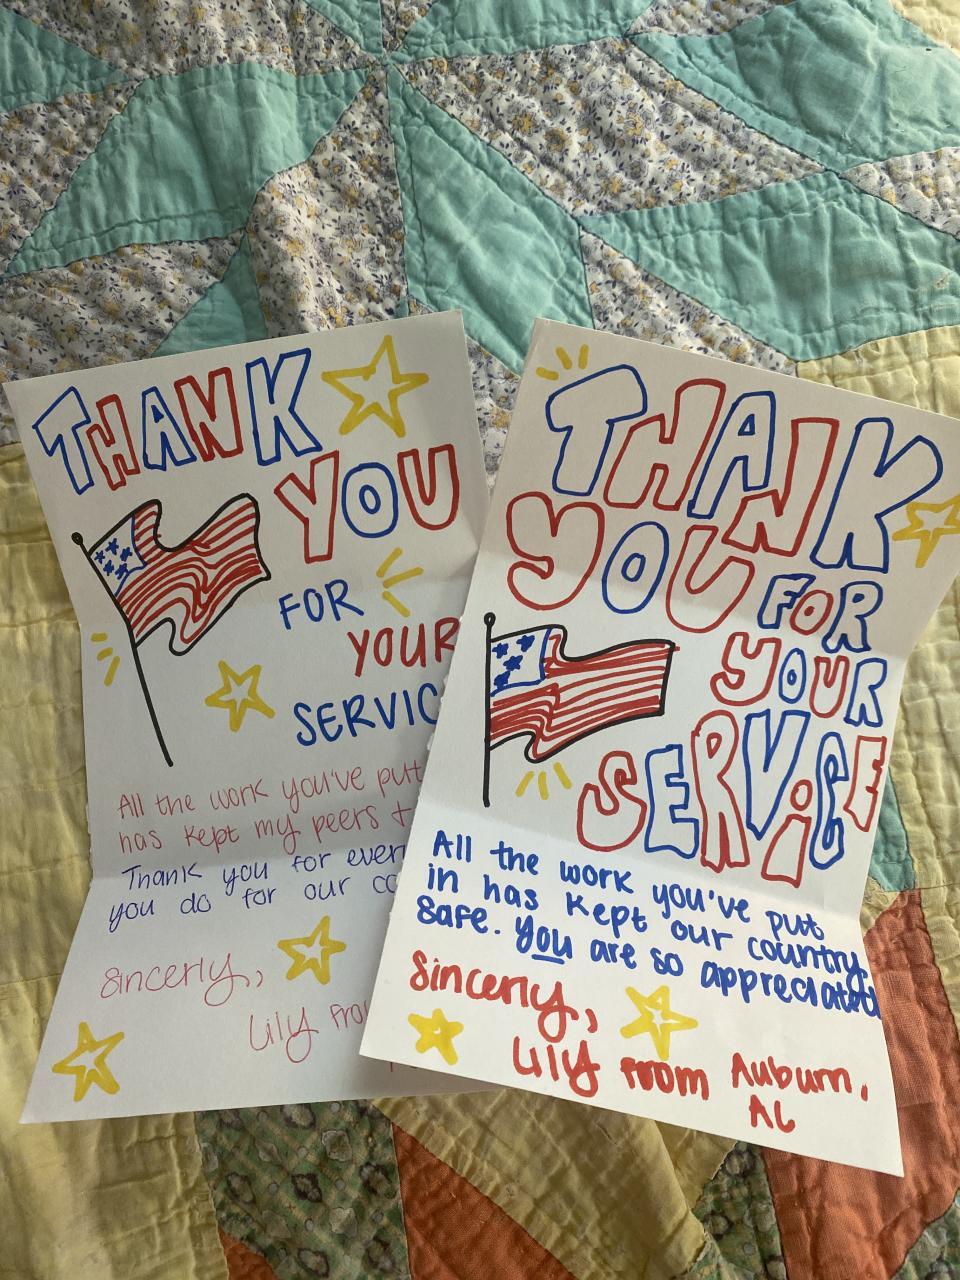 THANK
YOU
FOR
YOUR
SERVIC
All the work you've put
has kept my peers +
Thank you for ever
you do for our co
Sincerly,
Lily fro
THANK
YOU FOR
YOUR
SERViCE
All the work you've put
in has kept our country
safe. You are so appreciated
Sincerly,
Lily from Auburn,
AL